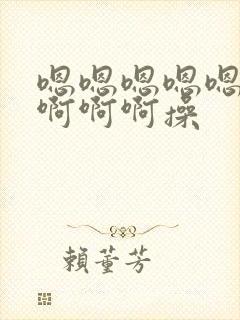 嗯嗯嗯嗯嗯
啊啊啊操
賴董芳